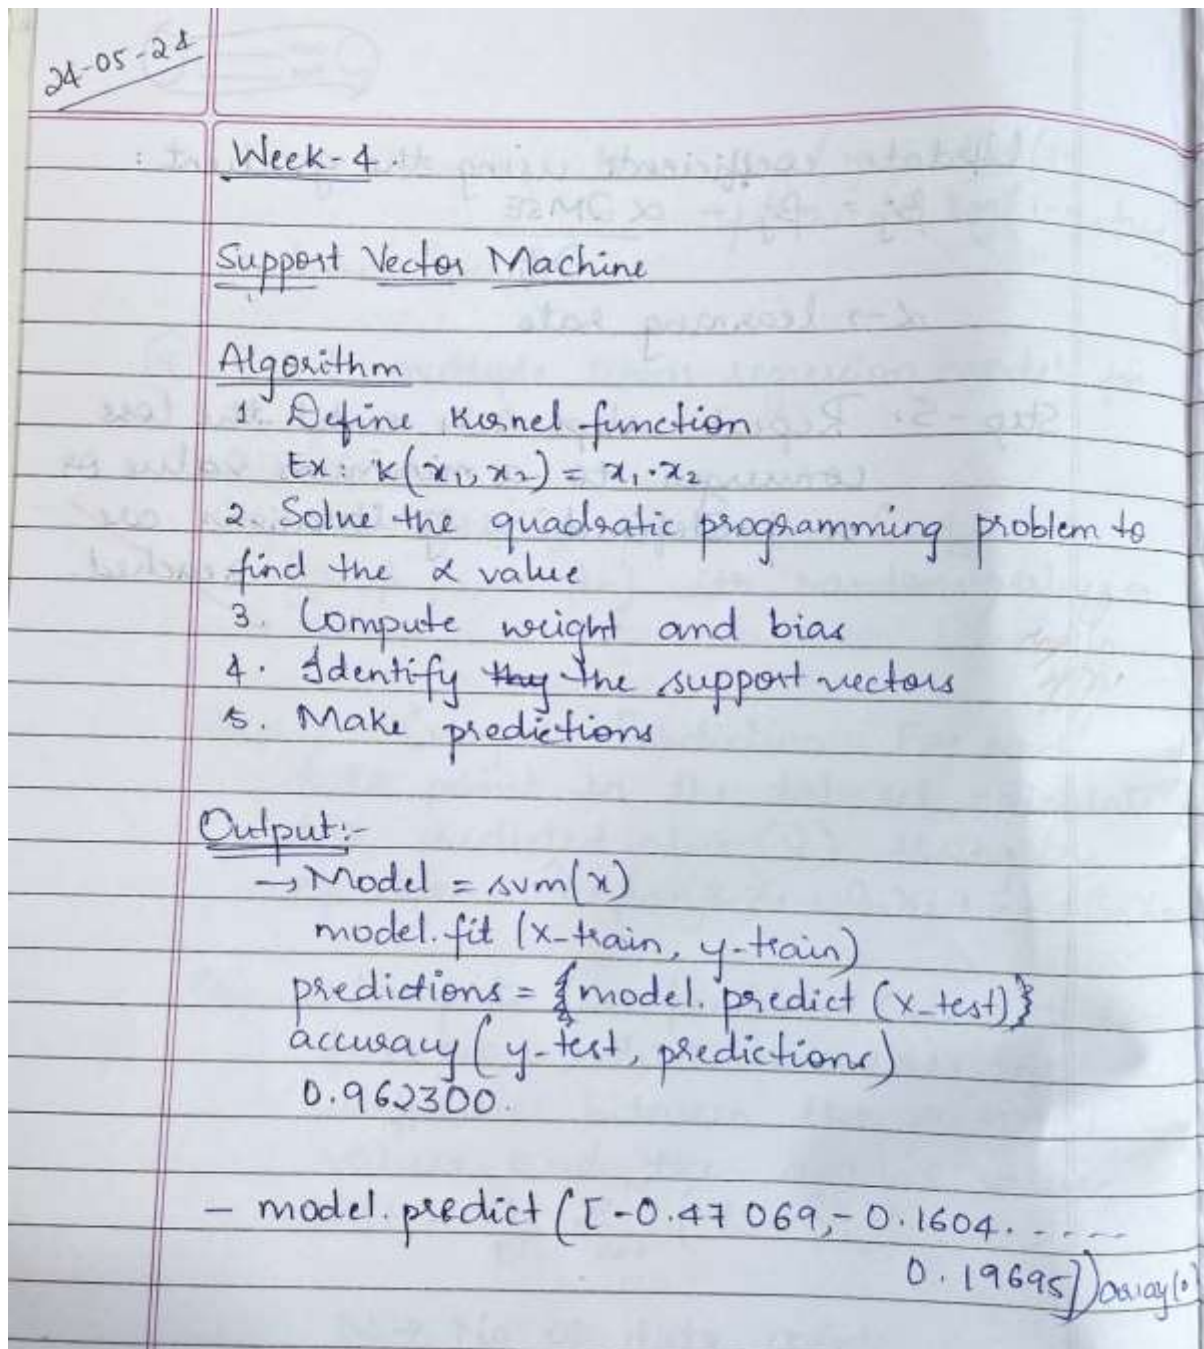 24-05-24
Week-4.
Support Vector Machine
Algorithm
1. Define Kernel function
Ex: K(x₁, x₂) = x₁·x₂
2. Solve the quadratic programming problem to
find the α value
3. Compute weight and bias
4. Identify the support vectors
5. Make predictions
Output:-
→ Model = svm(x)
model.fit (x-train, y-train)
predictions = {model.predict (x_test)}
accuracy (y-test, predictions)
0.962300.
- model.predict ([-0.47069,-0.1604.....
0.19695])array(